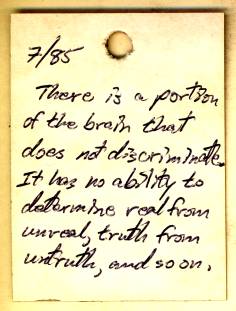 7/85
There is a portion
of the brain that
does not discriminate.
It has no ability to
determine real from
unreal, truth from
untruth, and so on.